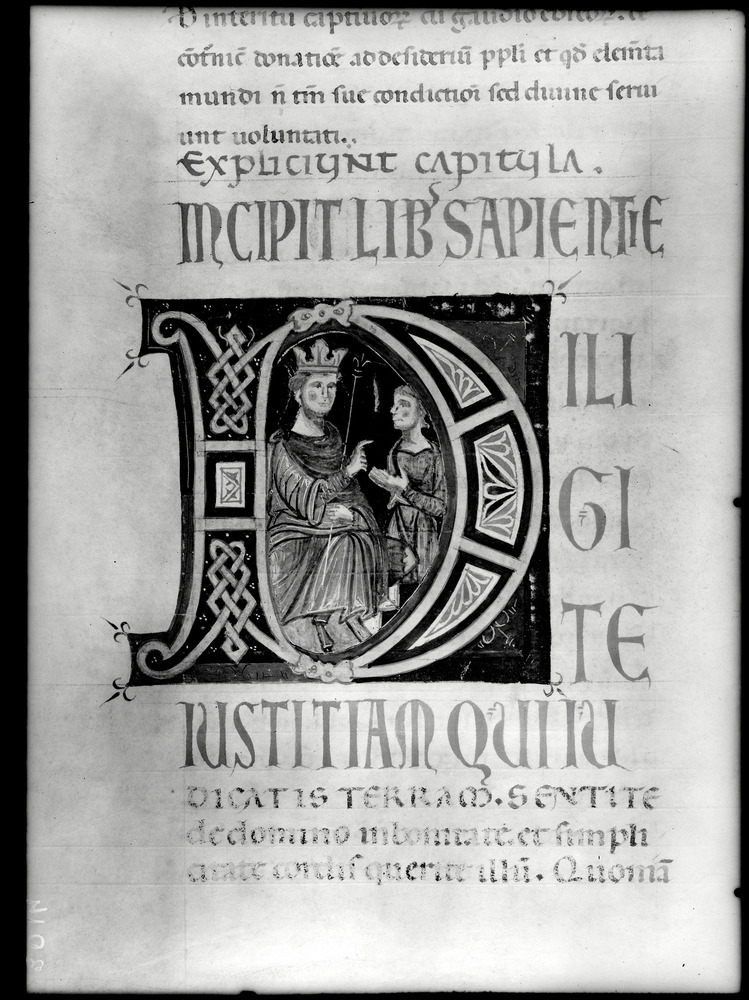 D interitu captiuoꝝ cū gaudio
cōtīnē donatiōe ad desideriū ppłi et qđ elemta
mundi ñ tm̄ sue condictiōi sed diuine serui
unt uoluntati..
Expliciunt capitula.
INCIPIT LIB' SAPIENTIE
DILI
GI
TE
IUSTITIAM QUI IU
DICATIS TERRAM. SENTITE
de domino in bonitate. et simpli
citate cordis querite illū. Quoniā